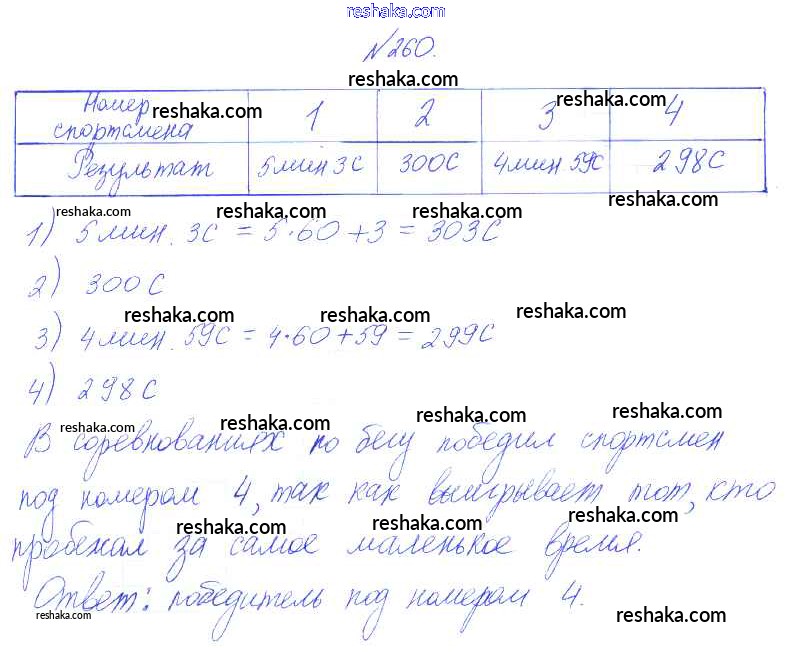 reshaka.com
№260.
reshaka.com
Номер спортсмена reshaka.com 1 2 3 reshaka.com 4
Результат 5мин 3с 300с 4мин 59с 298с
reshaka.com reshaka.com reshaka.com reshaka.com
1) 5мин. 3с = 5·60+3 = 303с
2) 300с
reshaka.com reshaka.com reshaka.com
3) 4мин. 59с = 4·60+59 = 299с
4) 298с
reshaka.com reshaka.com reshaka.com reshaka.com
В соревнованиях по бегу победил спортсмен
под номером 4, так как выигрывает тот, кто
reshaka.com reshaka.com reshaka.com
пробежал за самое маленькое время.
Ответ: победитель под номером 4.
reshaka.com reshaka.com ⁠reshaka.com